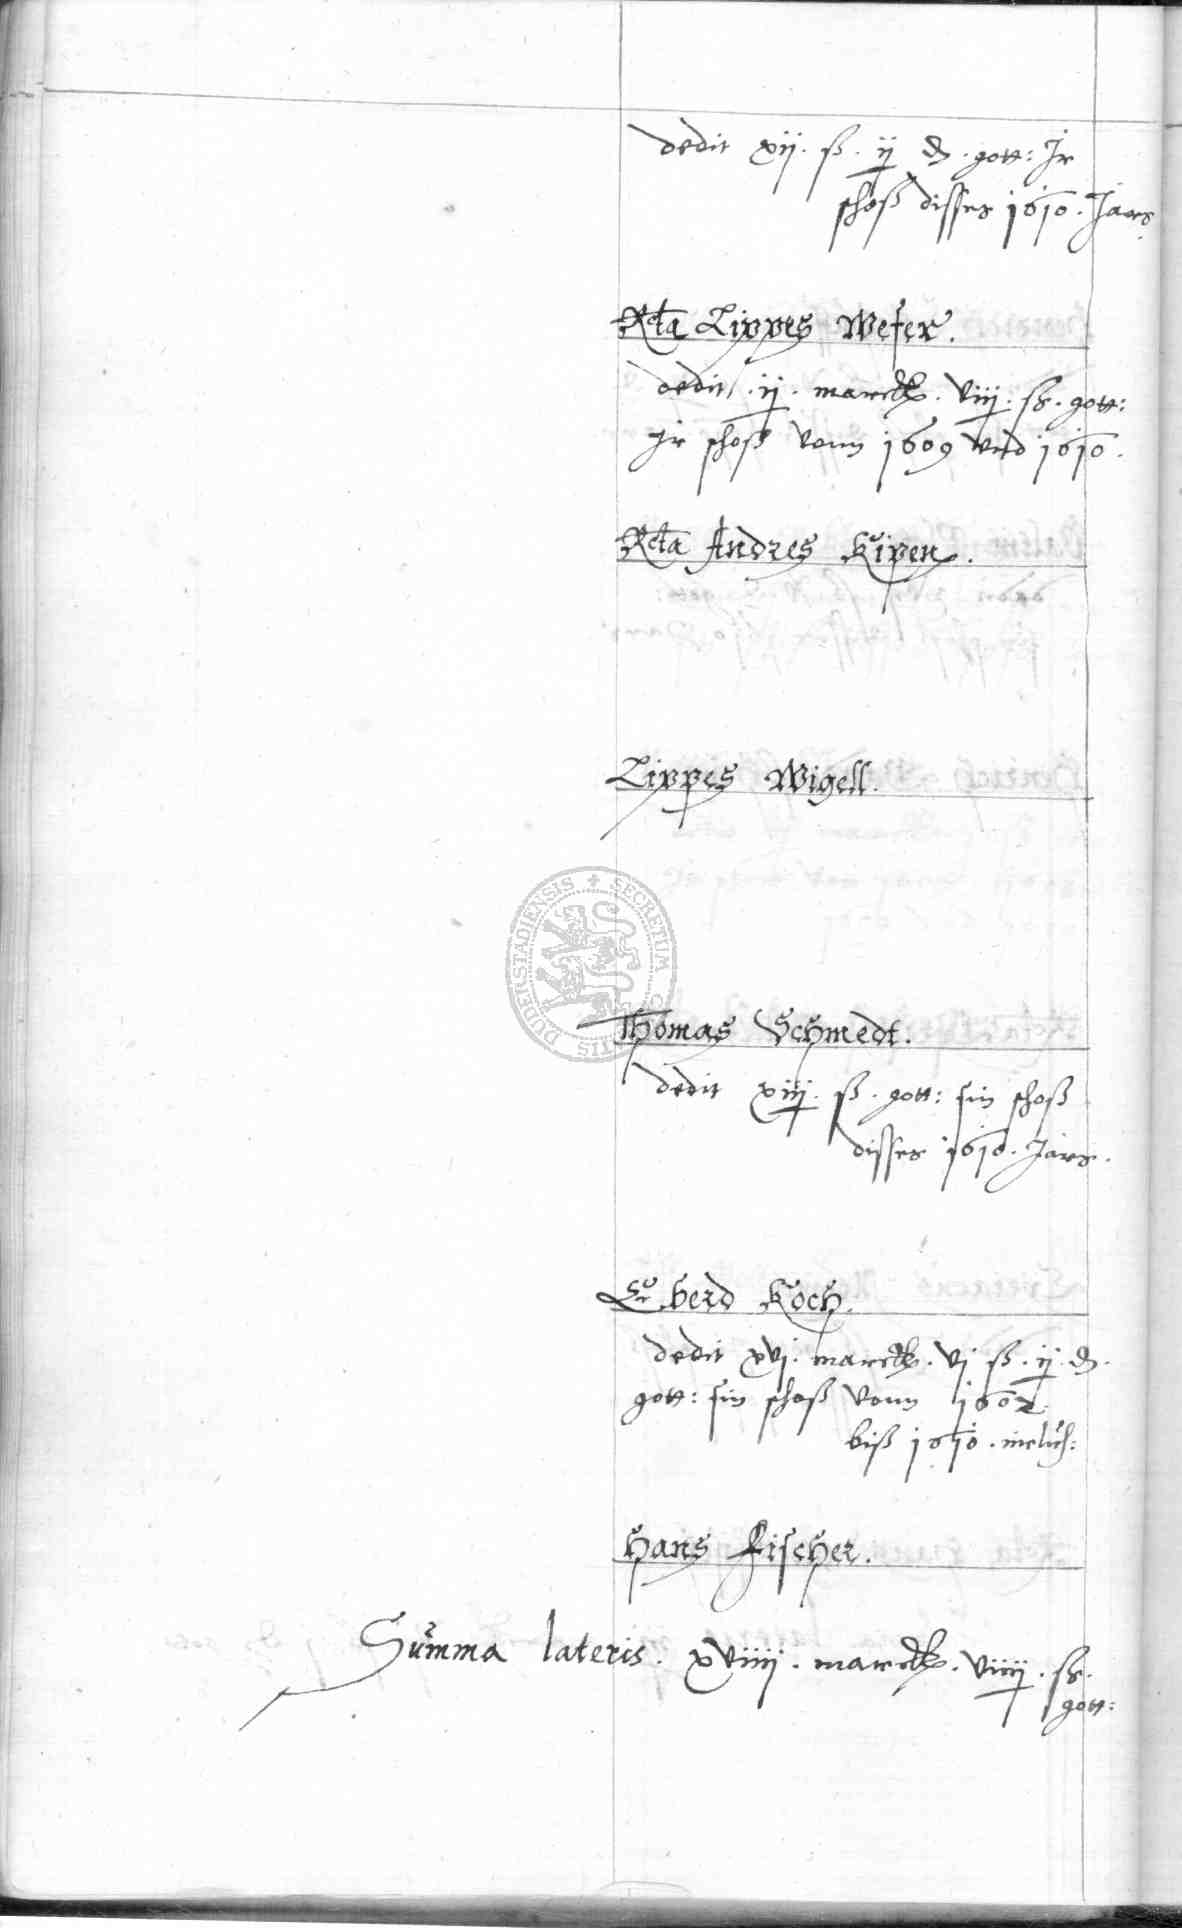 dedit xij. ß. ij ₰. gott: Jr
schoß disses 1610. Jars.
Rcta Lippes Weser.
dedit. ij. marck. viij. ß. gott:
Jr schoß vonn 1609 vnd 1610.
Rcta Andres Kipen.
Lippes Wigell.
SECRETUM
DUDERSTADIENSIS
Thomas Schmedt.
dedit xiij. ß. gott: sin schoß
disses 1610. Jars.
Eberd Koch.
dedit xvj. marck. vj ß. ij. ₰.
gott: sin schoß vonn 1602
biß 1610. inclus:
Hans Fischer.
Summa lateris. xviiij. marck. viiij. ß.
gott: